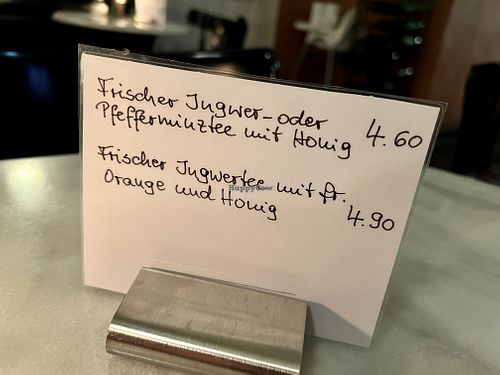 Frischer Ingwer- oder
Pfefferminztee mit Honig 4.60
Frischer Ingwertee mit fr.
Orange und Honig 4.90
HappyCow